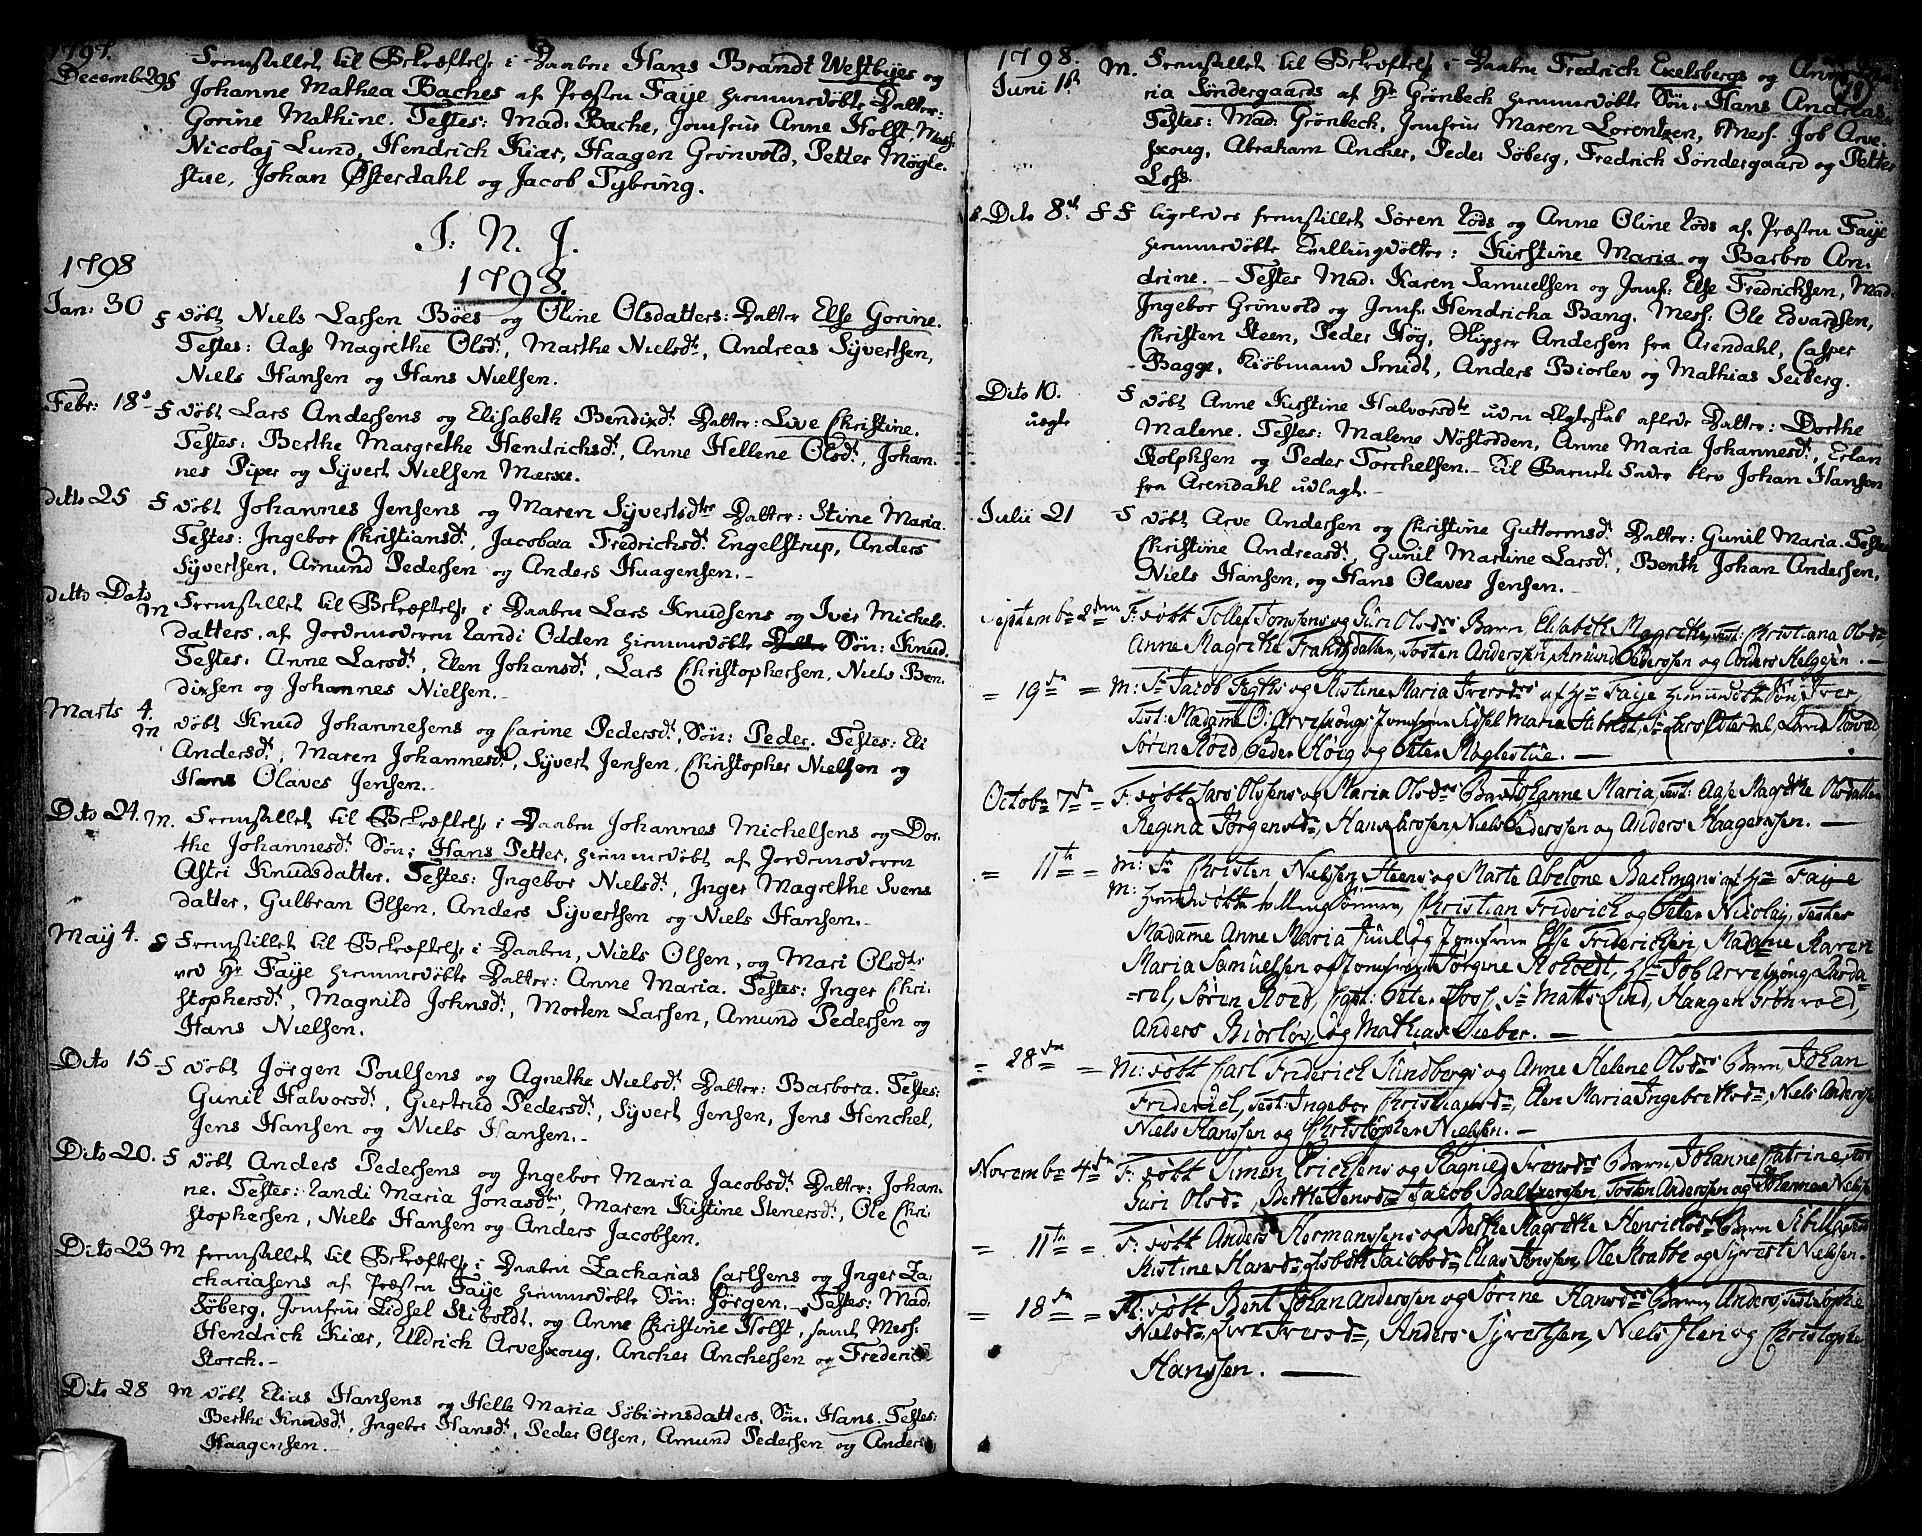 1797.
Decemb 29 F Fremstillet til Bekræftelse i Daaben Hans Brandt Westbyes og
Johanne Mathea Baches af Præsten Faÿe hiemmedöbte Datter:
Gorine Mathine. Testes: Mad: Bache, Jomfrue Anne Holst, Mess:
Nicolaj Lund, Hendrich Kiær, Haagen Grönvold, Petter Mögle-
stue, Johan Østerdahl og Jacob Tybring.
I. N. J.
1798
1798.
Jan: 30 F döbt Niels Larsen Böes og Oline Olsdatters: Datter Else Gorine.
Testes: Aase Magrethe Olsd:, Marthe Nielsd:, Andreas Sÿvertsen,
Niels Hansen og Hans Nielsen.
Febr: 18 F döbt Lars Andersens og Elisabeth Bendixd: Datter: Live Christine.
Testes: Berthe Margrethe Hendrichsd:, Anne Hellene Olsd:, Johan-
nes Piper og Sÿvert Nielsen Mærxe.
ditto 25 F döbt Johannes Jensens og Maren Sÿvertsdtr Datter: Stine Maria.
Testes: Ingebor Christiansd:, Jacobæa Fredrichsd: Engelstrup, Anders
Sÿvertsen, Amund Pedersen og Anders Haagensen.-
ditto Dato M Fremstillet til Bekræftelse i Daaben Lars Knudsens og Iver Michels-
datters, af Jordemoderen Randi Odden hiemmedöbte Datter Sön: Knud.
Testes: Anne Larsd:, Elen Johansd:, Lars Christophersen, Niels Ben-
dixsen og Johannes Nielsen.-
Marts 4. M döbt Knud Johannesens og Carine Pedersd:, Sön: Peder. Testes: Eli
Andersd:, Maren Johannesd:, Sÿvert Jensen, Christopher Nielsen og
Hans Olaves Jensen.-
Dito 24. M. Fremstillet til Bekræftelse i Daaben Johannes Michelsens og Dor-
the Johannesd: Sön: Hans Petter, hiemmedöbt af Jordemoderen
Astri Knudsdatter. Testes: Ingebor Nielsd:, Inger Magrethe Svens
datter, Gulbran Olsen, Anders Sÿvertsen og Niels Hansen.-
Maÿ 4. F Fremstillet til Bekræftelse i Daaben, Niels Olsen, og Mari Olsdtr
ved Hr Faÿe hiemmedöbte Datter: Anne Maria. Testes: Inger Chri-
stophersd:, Magnild Johnsd:, Morten Larsen, Amund Pedersen og
Hans Nielsen.
Dito 15 F döbt Jörgen Poulsens og Agnethe Nielsd: Datter: Barbora. Testes:
Gunil Halvorsd:, Giertrud Pedersd:, Sÿvert Jensen, Jens Henchel,
Jens Hansen og Niels Hansen.-
Dito 20. F döbt Anders Pedersens og Ingebor Maria Jacobsd: Datter: Johan-
ne. Testes: Randi Maria Jonasd:, Maren Kistine Stenersd:, Ole Chri-
stophersen, Niels Hansen og Anders Jacobsen.
Dito 23 M fremstillet til Bekræftelse i Daaben Zacharias Carlsens og Inger Za-
chariasens af Præsten Faÿe hiemmedöbte Sön: Jörgen. Testes: Mad:
Söberg, Jomfrue Zidsel Stiboldt, og Anne Christine Holst, samt Mess:
Hendrich Kiær, Uldrich Arveskoug, Ancher Anchersen og Frederic
Storch.-
Dito 28 M döbt Elias Hansens og Helle Maria Söbiörnsdatters, Sön, Hans. Testes:
Berthe Knudsd:, Ingebor Hansd:, Peder Olsen, Amund Pedersen og Anders
Haagensen.-
1798.
78
Juni 1st M. Fremstillet til Bekræftelse i Daaben Fredrich Exelsbergs og Anne Ma-
ria Söndergaards af Hr Grönbech hiemmedöbte Sön: Hans Andreas.
Testes: Mad: Grönbech, Jomfrue Maren Lorentzen, Mess. Job Arve-
skoug, Abraham Ancher, Peder Söberg, Fredrich Söndergaard og Petter
Loss.
Dito 8de F F ligeledes fremstillet Sören Röds og Anne Oline Röds af Præsten Faÿe
hiemmedöbte Tvillingdötter: Kirstine Maria og Barbro An-
drine.- Testes Mad: Karen Samuelsen og Jomf: Else Fredrichsen, Mad:
Ingebor Grönvold og Jomf: Hendricha Bang. Mess: Ole Edvardsen,
Christen Steen, Peder Höÿ, Skipper Andersen fra Arendahl, Casper
Bagge, Kiöbmand Smidt, Anders Biorlev og Mathias Seiberg.
Dito 10. F döbt Anne Kirstine Halvorsdtr uden Ægteskab aflede Datter: Dorthe
uægte
Malene. Testes: Malene Nöstedden, Anne Maria Johannesd:, Erlan
Rolphsen og Peder Torchelsen.- Til Barnets Fader blev Johan Hansen
fra Arendahl udlagt.-
Julii 21 F döbt Arve Andersen og Christine Guttormsd: Datter: Gunil Maria. Testes
Christine Andreasd:, Gunil Martine Larsd:, Benth Johan Andersen,
Niels Hansen, og Hans Olaves Jensen.
Septembr 2den F: döbt Tollef Tomsens og Guri Olsdrs Barn Elisabeth Magrethe, Test: Christiana Olsdr
Anne Magrethe Frandsdatter, Tosten Anderssen, Amund Pederssen og Anders Helgesen.
= 19de = M: Sr Jacob Fegths og Kistine Maria Iversdrs af Hr Faÿe hiemmedöbt Sön Iver,
Test: Madame O: Arveskougs Jomfruen Sidsel Maria Stiboldt, Sr Lars Osterdal,
Sören Röed, Peder Höig og Petter Möglestue.
Octobr 7de = F: döbt Lars Olssens og Maria Olsdrs Barn Johanne Maria, Test: Aase Magrethe Olsdatter
Regina Jörgensdr, Hans Larssen, Niels Pederssen og Anders Haagenssen.
= 11te = M: Sr Christen Nielssen Steens og Marte Abelone Bachmans af Hr Faÿe
M: hiemmedöbte tvillingsönner, Christian Friderich og Peter Nicolaÿ, Testes
Madame Anne Maria Juul og Jomfruen Else Friderichsen, Madame Karen
Maria Samuelssen og Jomfruen Jörgine Roholdt, Hr Job Arveskoug, Larda-
rel, Sören Röed, Capt: Peter Loss, Sr Matts Lind, Haagen Grönvold,
Anders Biorlöv, og Mathias Sieber.
= 28de = M: döbt Carl Friderich Sundbergs og Anne Helene Olsdrs Barn, Johan
Friderich, Test: Ingebor Christiansdr, Elen Maria Ingebretsdr, Niels Anderssen
Niels Hanssen og Christopher Nielssen.
Novembr 4de F: döbt Simen Erichsens og Ragnied Svensdrs Barn, Johanne Catrine, Test:
Guri Olsdr, Berthe Jensdr, Jacob Baltzerssen, Tosten Anderssen og Johannes Nielsen
= 11te = F: döbt Anders Hormanssens og Berthe Magrethe Henrichsdrs Barn Sibille, Test:
Kistine Hansdr, Lisbeth Jacobsdr, Elias Jenssen, Ole Krabbe og Syvert Nielssen.
= 18de = M: döbt Bent Johan Anderssen og Sörine Hansdrs Barn Anders, Test: Sophie
Nielsdr, Live Iversdr, Anders Syvertsen, Niels Iversen og Christopher
Hanssen.